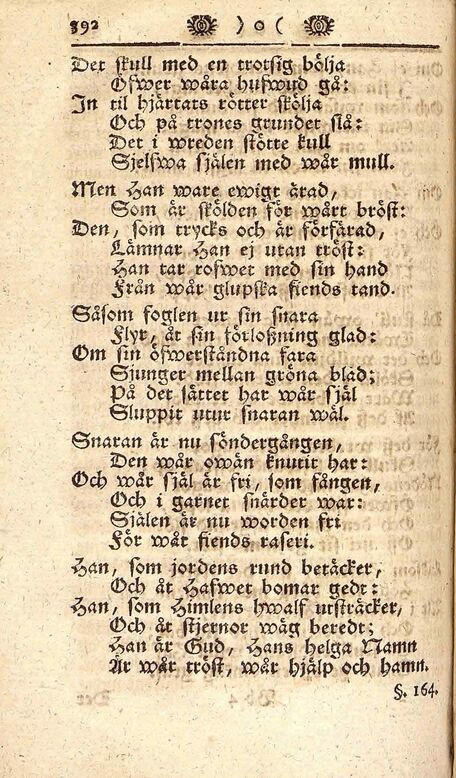 392 ) o (
Det skull med en trotsig bölja
Öfwer wåra hufwud gå:
In til hjärtats rötter skölja
Och på trones grundet slå:
Det i wreden störte kull
Sjelfwa själen med wår mull.
Men Han ware ewigt ärad,
Som är skölden för wårt bröst:
Den, som trycks och är förfärad,
Lämnar Han ej utan tröst:
Han tar rofwet med sin hand
Från wår glupska fiends tand.
Såsom foglen ur sin snara
Flyr, åt sin förloßning glad:
Om sin öfwerståndna fara
Sjunger mellan gröna blad;
På det sättet har wår själ
Sluppit utur snaran wäl.
Snaran är nu söndergången,
Den wår owän knutit har:
Och wår själ är fri, som fången,
Och i garnet snärder war:
Själen är nu worden fri
För wår fiends raseri.
Han, som jordens rund betäcker,
Och åt Hafwet bomar gedt:
Han, som Himlens hwalf utsträcker,
Och åt stjernor wäg beredt;
Han är Gud, Hans helga Namn
Är wår tröst, wår hjälp och hamn.
§. 164.